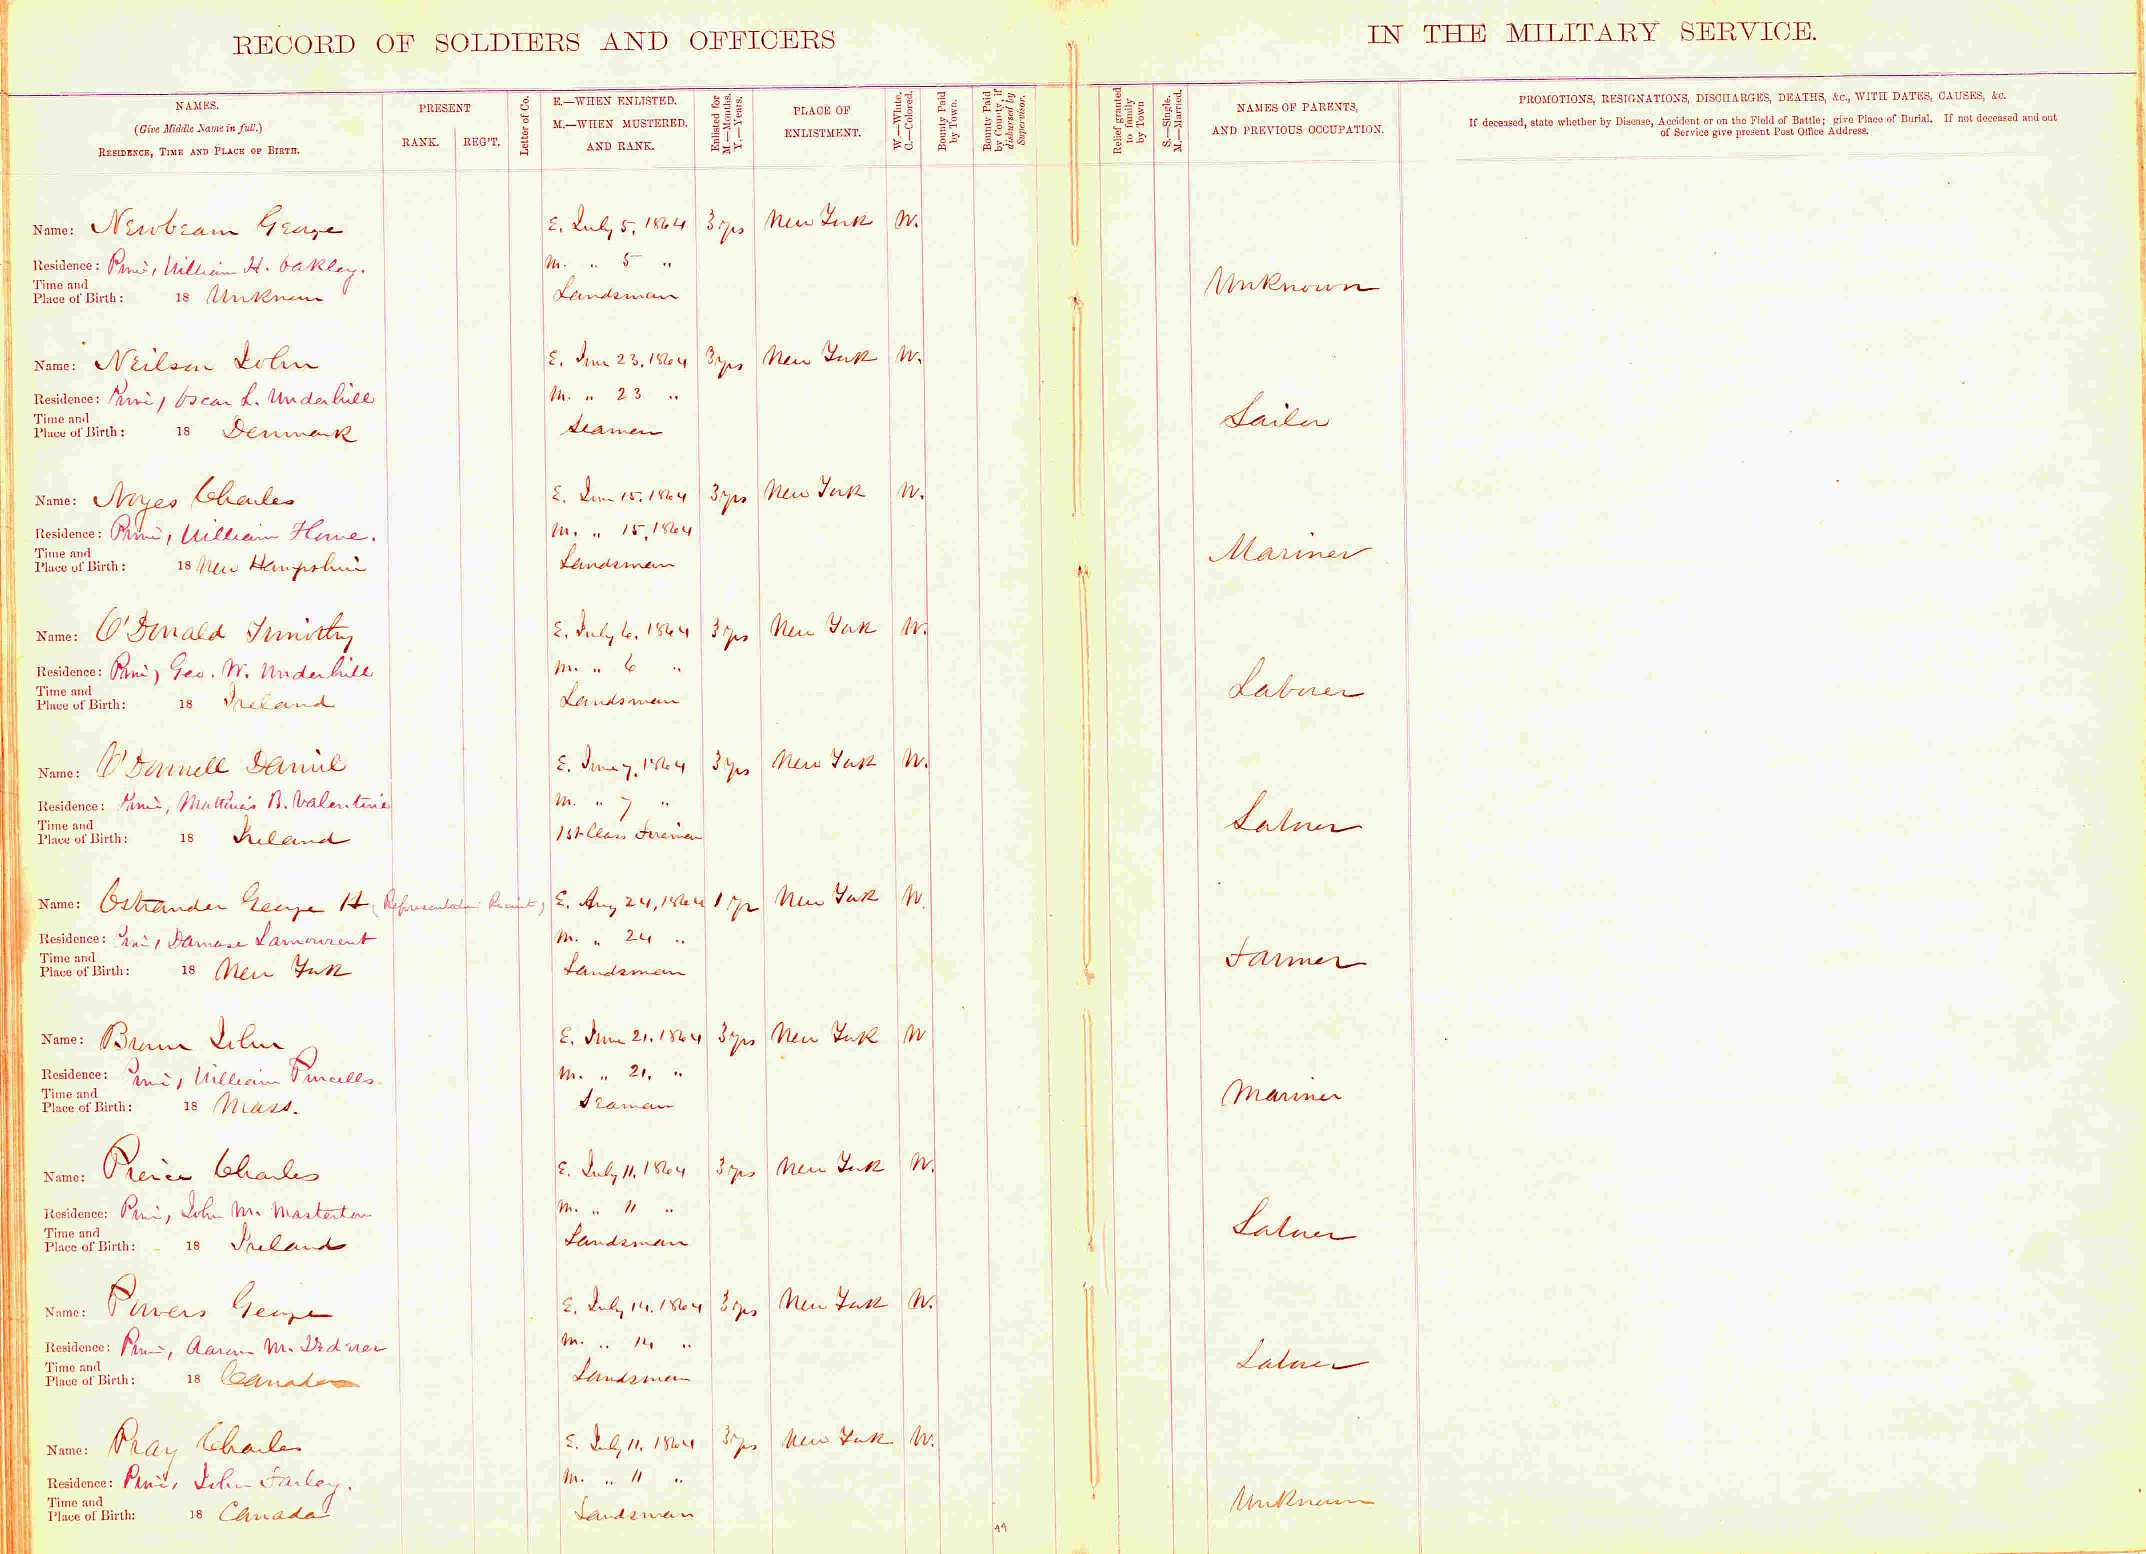 RECORD OF SOLDIERS AND OFFICERS IN THE MILITARY SERVICE.
NAMES.
(Give Middle Name in full.)
RESIDENCE, TIME AND PLACE OF BIRTH.
PRESENT
RANK. REG'T.
Letter of Co.
E.—WHEN ENLISTED.
M.—WHEN MUSTERED.
AND RANK.
Enlisted for
M—Months.
Y.—Years.
PLACE OF
ENLISTMENT.
W.—White.
C.—Colored.
Bounty Paid
by Town.
Bounty Paid
by County, if
disbursed by
Supervisor.
Relief granted
to family
by Town
S.—Single.
M.—Married.
NAMES OF PARENTS,
AND PREVIOUS OCCUPATION.
PROMOTIONS, RESIGNATIONS, DISCHARGES, DEATHS, &c., WITH DATES, CAUSES, &c.
If deceased, state whether by Disease, Accident or on the Field of Battle; give Place of Burial. If not deceased and out
of Service give present Post Office Address.
Name: Newbeam George E. July 5, 1864 3 yrs New York W.
Residence: Prin, William H. Oakley. M. " 5 "
Time and
Place of Birth: 18 Unknown Landsman Unknown
Name: Neilson John E. June 23, 1864 3 yrs New York W.
Residence: Prin, Oscar L. Underhill M. " 23 "
Time and
Place of Birth: 18 Denmark Seaman Sailor
Name: Noyes Charles E. June 15, 1864 3 yrs New York W.
Residence: Prin, William Howe. M. " 15, 1864
Time and
Place of Birth: 18 New Hampshire Landsman Mariner
Name: O'Donald Timothy E. July 6, 1864 3 yrs New York W.
Residence: Prin, Geo. W. Underhill M. " 6 "
Time and
Place of Birth: 18 Ireland Landsman Laborer
Name: O'Donnell Daniel E. June 7, 1864 3 yrs New York W.
Residence: Prin, Matthias B. Valentine M. " 7 "
Time and
Place of Birth: 18 Ireland 1st Class Fireman Laborer
Name: Ostrander George H (Representative Recruit) E. Aug 24, 1864 1 yr New York W.
Residence: Prin, Damase Lamoureux M. " 24 "
Time and
Place of Birth: 18 New York Landsman Farmer
Name: Brown John E. June 21, 1864 3 yrs New York W
Residence: Prin, William Purcells. M. " 21, "
Time and
Place of Birth: 18 Mass. Seaman Mariner
Name: Pierce Charles E. July 11, 1864 3 yrs New York W.
Residence: Prin, John M. Masterton M. " 11 "
Time and
Place of Birth: 18 Ireland Landsman Laborer
Name: Powers George E. July 14, 1864 3 yrs New York W.
Residence: Prin, Aaron M. M. " 14 "
Time and
Place of Birth: 18 Canada Landsman Laborer
Name: Pray Charles E. July 11, 1864 3 yrs New York W.
Residence: Prin, John Farley. M. " 11 "
Time and
Place of Birth: 18 Canada Landsman Unknown